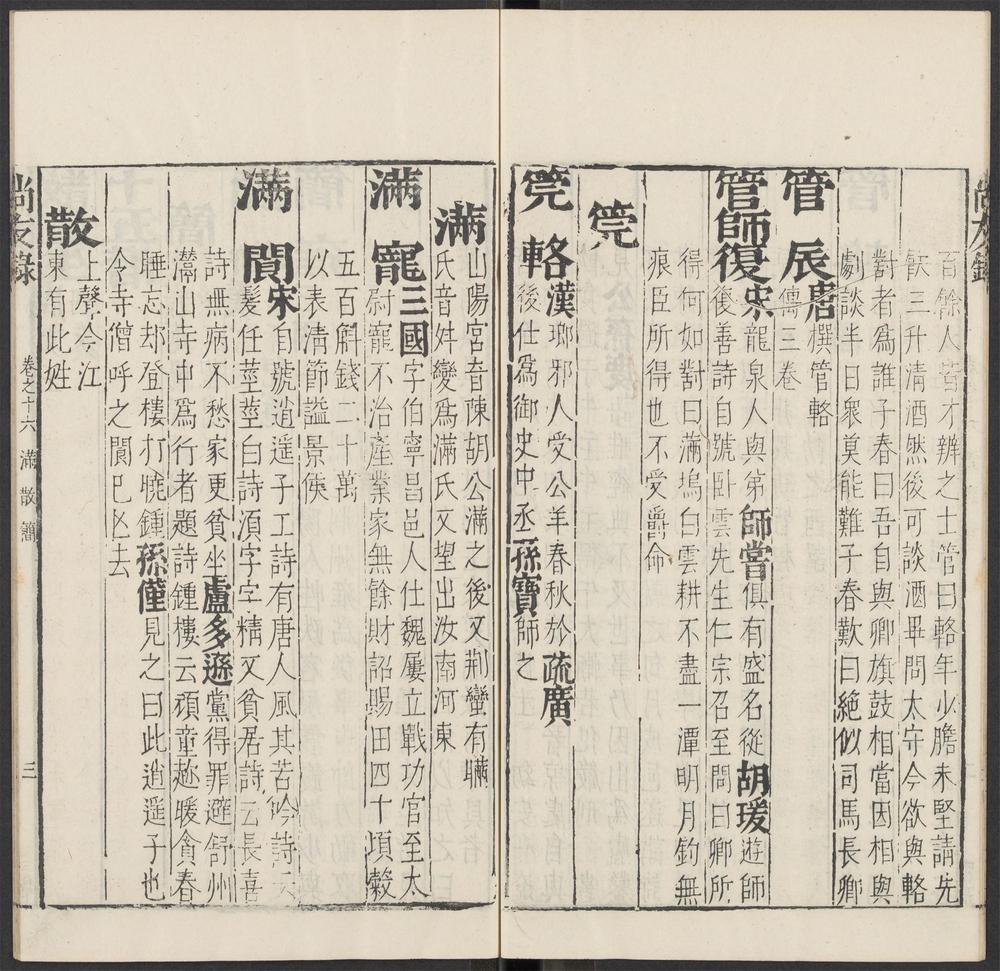 尚友錄
百餘人皆才辨之士管曰輅年少膽未堅請先
飲三升清酒然後可談酒畢問太守今欲與輅
對者爲誰子春曰吾自與卿旗鼓相當因相與
劇談半日衆莫能難子春歎曰絶似司馬長卿
管辰唐撰管輅
傳三卷
管師復宋龍泉人與弟師當俱有盛名從胡瑗遊師
復善詩自號卧雲先生仁宗召至問曰卿所
得何如對曰滿塢白雲耕不盡一潭明月釣無
痕臣所得也不受爵命
筦
筦輅漢瑯邪人受公羊春秋於疏廣
後仕爲御史中丞孫寶師之
滿山陽宮音陳胡公滿之後又荆蠻有瞞
氏音舛變爲滿氏又望出汝南河東
滿寵三國字伯寧昌邑人仕魏屢立戰功官至太
尉寵不治產業家無餘財詔賜田四十頃穀
五百斛錢二十萬
以表清節謚景侯
滿閴宋自號逍遥子工詩有唐人風其苦吟詩云
髮任莖莖白詩須字字精又貧居詩云長喜
詩無病不愁家更貧坐盧多遜黨得罪避舒州
灊山寺中爲行者題詩鍾樓云頑童趂暖貪春
睡忘却登樓打曉鍾孫僅見之曰此逍遥子也
令寺僧呼之閴已亾去
散上聲今江
東有此姓
尚友錄 卷之十六 滿 散 簡 三